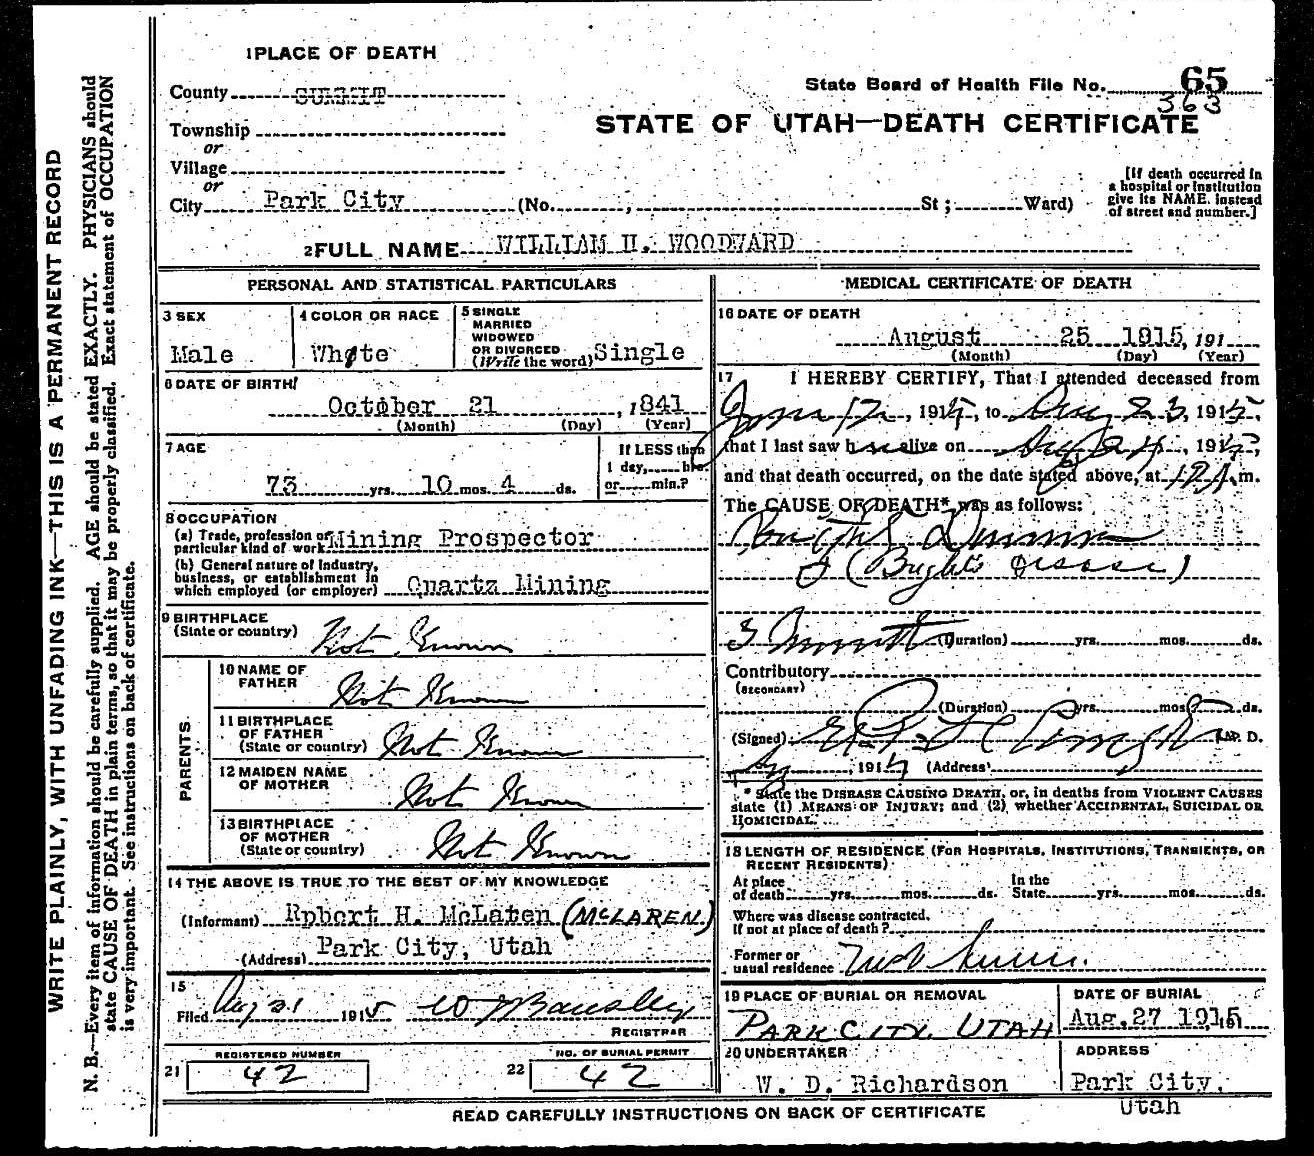 1 PLACE OF DEATH
County SUMMIT
State Board of Health File No. 65
363
Township
or
STATE OF UTAH—DEATH CERTIFICATE
Village
or
City Park City (No. , St ; Ward)
[If death occurred in
a hospital or institution
give its NAME. instead
of street and number.]
2 FULL NAME WILLIAM H. WOODWARD
PERSONAL AND STATISTICAL PARTICULARS
3 SEX
Male
4 COLOR OR RACE
White
5 SINGLE
MARRIED
WIDOWED
OR DIVORCED
(Write the word) Single
6 DATE OF BIRTH
October 21 , 1841
(Month) (Day) (Year)
7 AGE
73 yrs. 10 mos. 4 ds.
If LESS than
1 day, hrs.
or min.?
8 OCCUPATION
(a) Trade, profession or
particular kind of work Mining Prospector
(b) General nature of Industry,
business, or establishment in
which employed (or employer) Quartz Mining
9 BIRTHPLACE
(State or country) Not Known
PARENTS.
10 NAME OF
FATHER Not Known
11 BIRTHPLACE
OF FATHER
(State or country) Not Known
12 MAIDEN NAME
OF MOTHER Not Known
13 BIRTHPLACE
OF MOTHER
(State or country) Not Known
14 THE ABOVE IS TRUE TO THE BEST OF MY KNOWLEDGE
(Informant) Rpbert H. McLaten (McLAREN.)
(Address) Park City, Utah
15
Filed Aug 31 1915
REGISTRAR
21 REGISTERED NUMBER
42
22 NO. OF BURIAL PERMIT
42
MEDICAL CERTIFICATE OF DEATH
16 DATE OF DEATH
August 25 1915, 191
(Month) (Day) (Year)
17 I HEREBY CERTIFY, That I attended deceased from
, 1915, to Aug 23, 1915,
that I last saw h alive on Aug 24, 1915,
and that death occurred, on the date stated above, at m.
The CAUSE OF DEATH* was as follows:
(Brights Disease)
(Duration) yrs. mos. ds.
Contributory
(SECONDARY)
(Duration) yrs. mos. ds.
(Signed) M. D.
, 191 (Address)
* State the DISEASE CAUSING DEATH, or, in deaths from VIOLENT CAUSES
state (1) MEANS OF INJURY; and (2) whether ACCIDENTAL, SUICIDAL OR
HOMICIDAL.
18 LENGTH OF RESIDENCE (FOR HOSPITALS, INSTITUTIONS, TRANSIENTS, OR
RECENT RESIDENTS)
At place
of death yrs. mos. ds.
In the
State yrs. mos. ds.
Where was disease contracted,
If not at place of death?
Former or
usual residence
19 PLACE OF BURIAL OR REMOVAL
PARK CITY. UTAH
DATE OF BURIAL
Aug. 27 1915, 191
20 UNDERTAKER
W. D. Richardson
ADDRESS
Park City,
Utah
READ CAREFULLY INSTRUCTIONS ON BACK OF CERTIFICATE
WRITE PLAINLY, WITH UNFADING INK—THIS IS A PERMANENT RECORD
N. B.—Every item of information should be carefully supplied. AGE should be stated EXACTLY. PHYSICIANS should
state CAUSE OF DEATH in plain terms, so that it may be properly classified. Exact statement of OCCUPATION
is very important. See instructions on back of certificate.